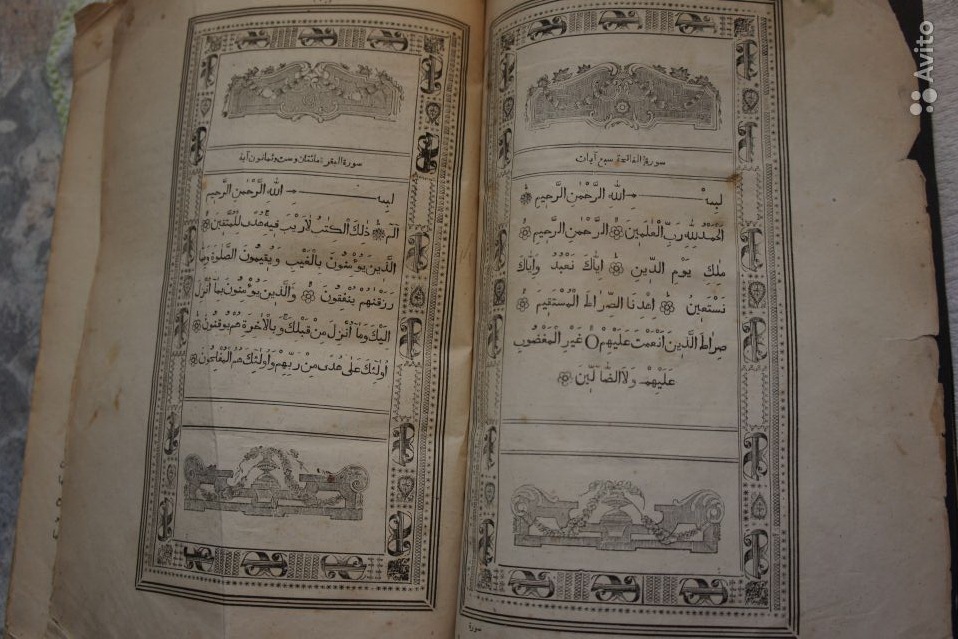 سورة الفاتحة سبع آيات
لِبِسْمِ ـــــ اللهِ الرَّحْمٰنِ الرَّحِيمِ
اَلْحَمْدُ لِلّٰهِ رَبِّ الْعٰلَمِينَ الرَّحْمٰنِ الرَّحِيمِ
مٰلِكِ يَوْمِ الدِّينِ اِيَّاكَ نَعْبُدُ وَاِيَّاكَ
نَسْتَعِينُ اِهْدِنَا الصِّرَاطَ الْمُسْتَقِيمَ
صِرَاطَ الَّذِينَ اَنْعَمْتَ عَلَيْهِمْ غَيْرِ الْمَغْضُوبِ
عَلَيْهِمْ وَلَا الضَّالِّينَ
سورة
سورة البقرة مائتان وست وثمانون آية
بِسْمِ ـــــ اللهِ الرَّحْمٰنِ الرَّحِيمِ
الٓمٓ ذٰلِكَ الْكِتٰبُ لَارَيْبَ فِيهِ هُدًى لِلْمُتَّقِينَ
الَّذِينَ يُؤْمِنُونَ بِالْغَيْبِ وَيُقِيمُونَ الصَّلٰوةَ وَمِمَّا
رَزَقْنٰهُمْ يُنْفِقُونَ وَالَّذِينَ يُؤْمِنُونَ بِمَا اُنْزِلَ
اِلَيْكَ وَمَا اُنْزِلَ مِنْ قَبْلِكَ وَبِالْاٰخِرَةِ هُمْ يُوقِنُونَ
اُولٰئِكَ عَلٰى هُدًى مِنْ رَبِّهِمْ وَاُولٰئِكَ هُمُ الْمُفْلِحُونَ
Avito